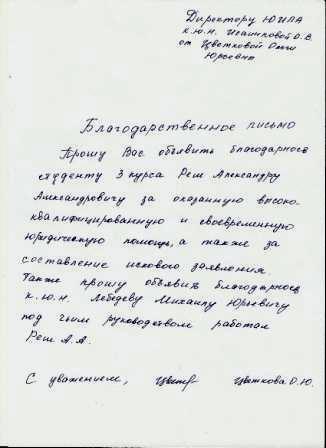 Директору ЮИПА
к.ю.н. О.В.
от Цветковой Ольги
Юрьевны
Благодарственное письмо
Прошу Вас объявить благодарность
студенту 3 курса Реш Александру
Александровичу за оказанную высоко-
квалифицированную и своевременную
юридическую помощь, а также за
составление искового заявления.
Также прошу объявить благодарность
к.ю.н. Лебедеву Михаилу Юрьевичу
под чьим руководством работал
Реш А.А.
С уважением, Цветкова О.Ю.